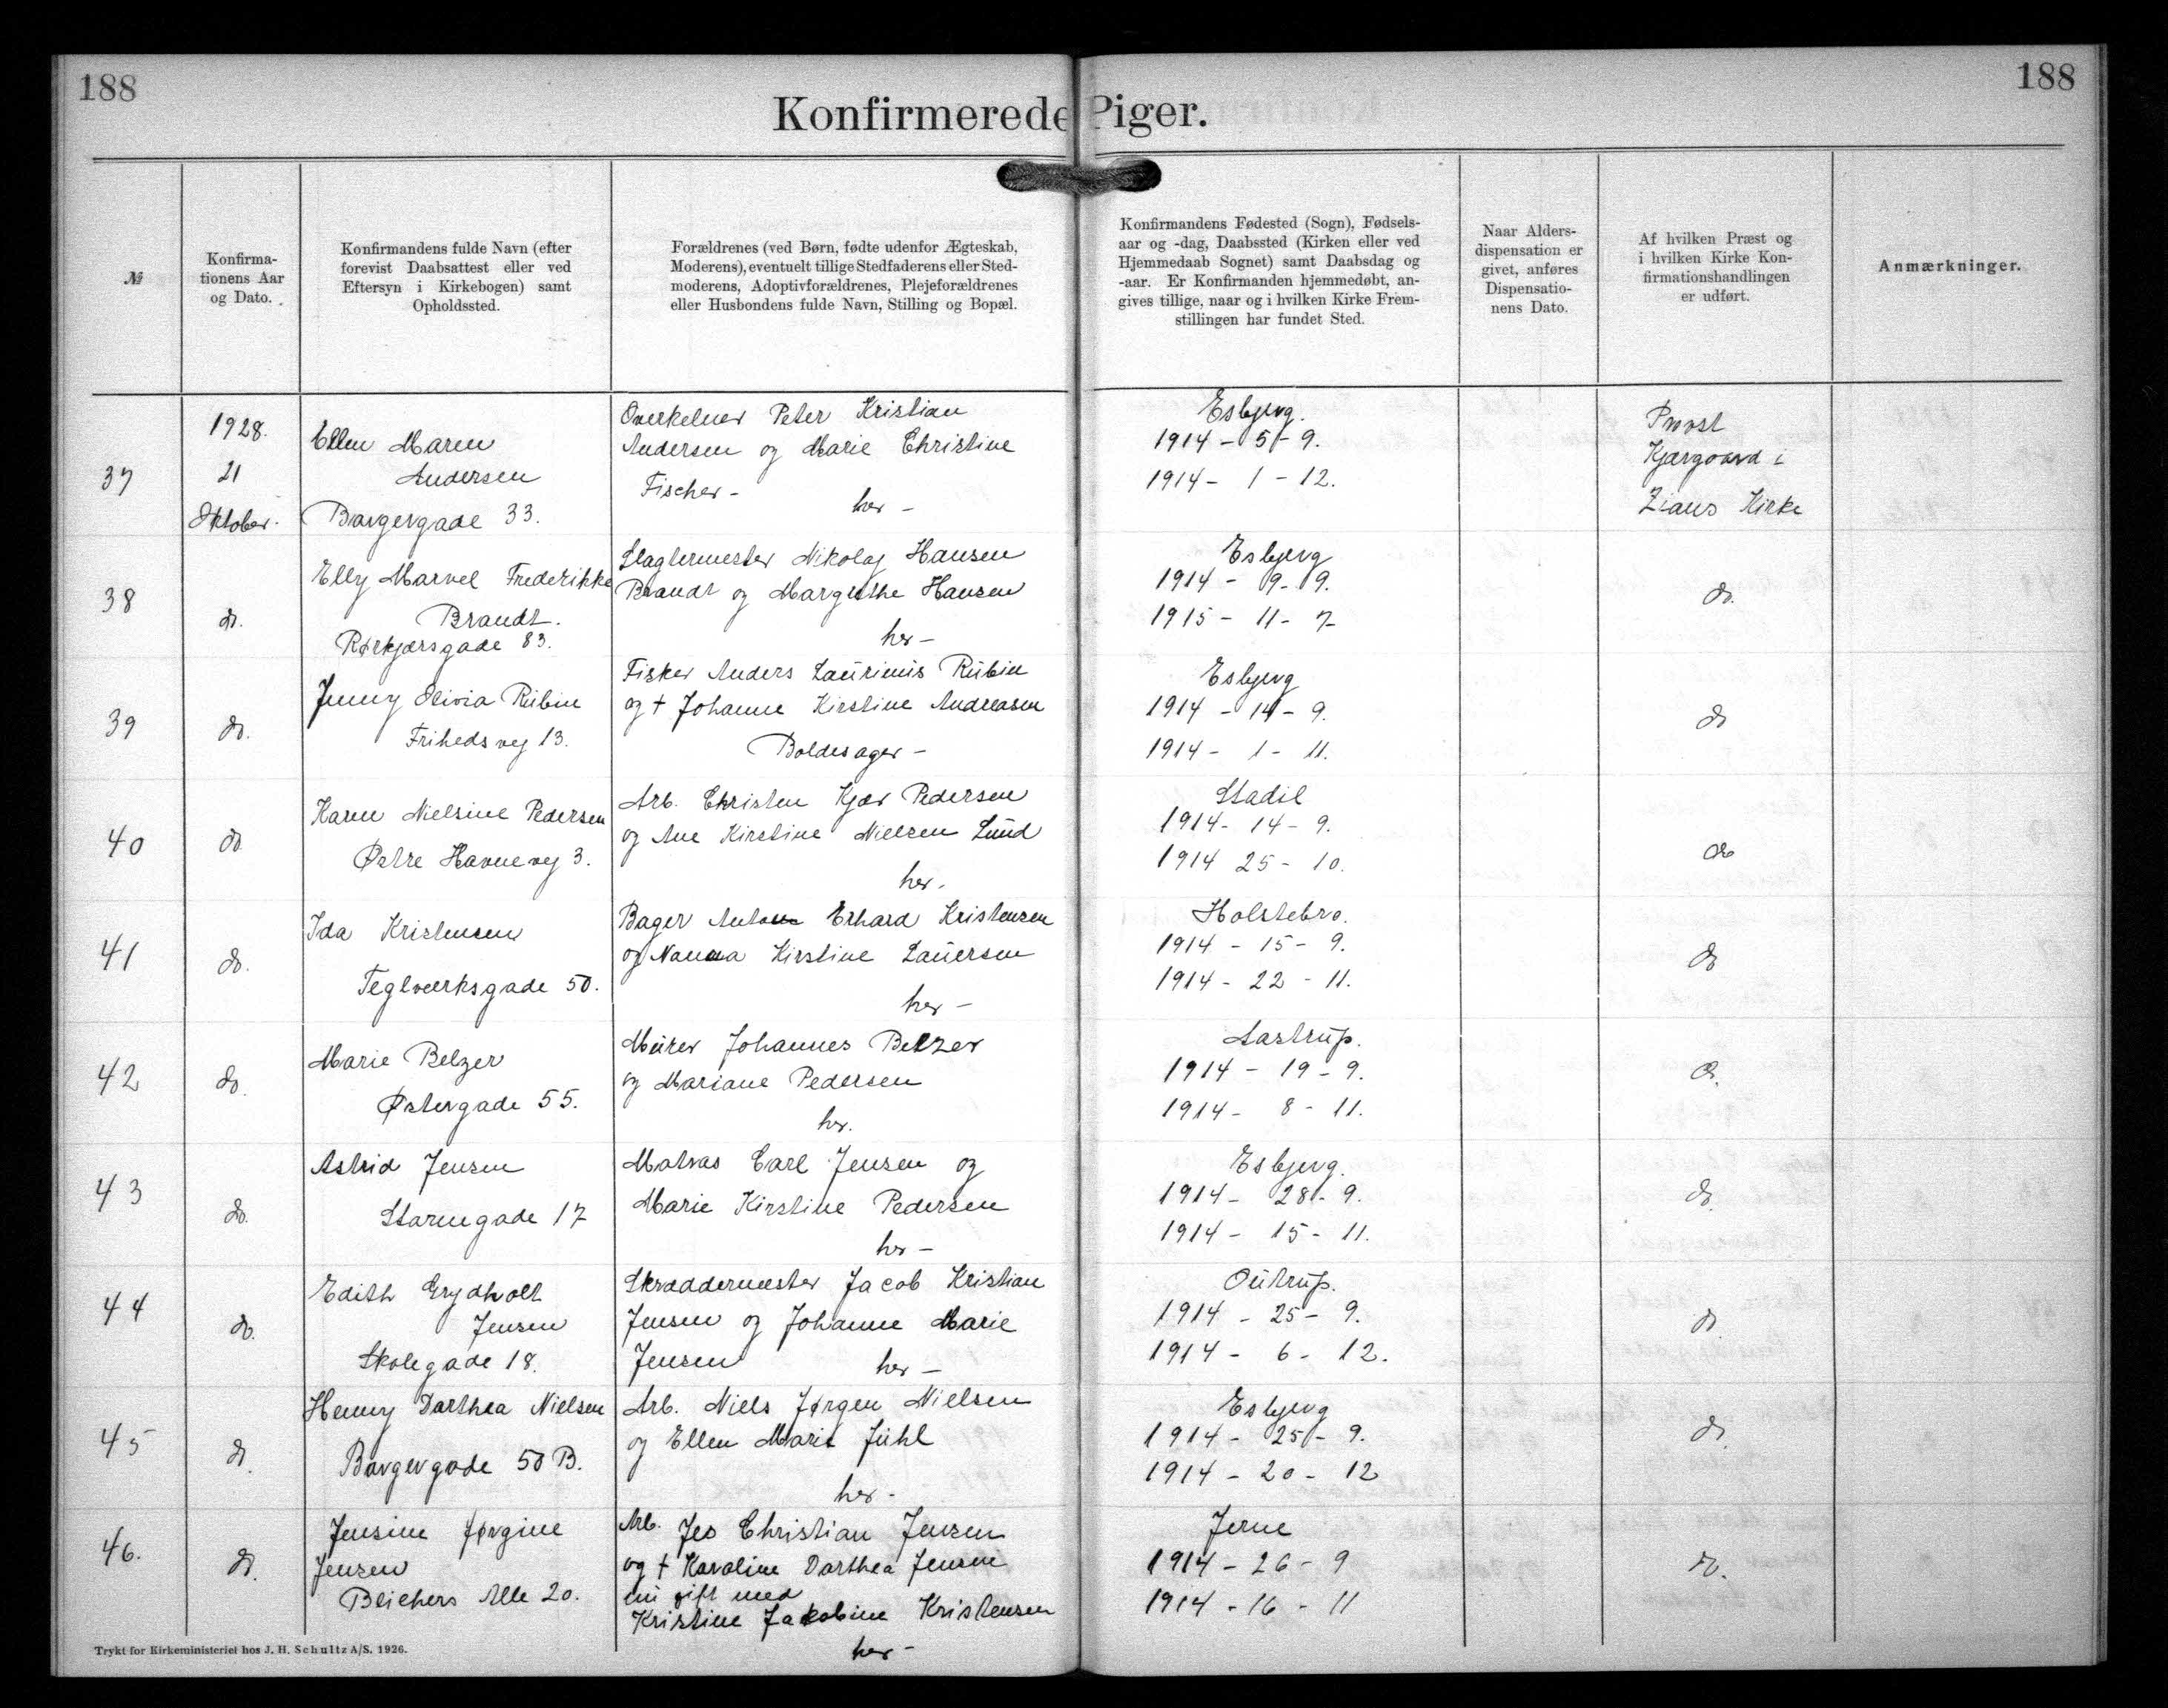 188
188
Konfirmerede Piger.
№
Konfirma-
tionens Aar
og Dato.
Konfirmandens fulde Navn (efter
forevist Daabsattest eller ved
Eftersyn i Kirkebogen) samt
Opholdssted.
Forældrenes (ved Børn, fødte udenfor Ægteskab,
Moderens), eventuelt tillige Stedfaderens eller Sted-
moderens, Adoptivforældrenes, Plejeforældrenes
eller Husbondens fulde Navn, Stilling og Bopæl.
Konfirmandens Fødested (Sogn), Fødsels-
aar og -dag, Daabssted (Kirken eller ved
Hjemmedaab Sognet) samt Daabsdag og
-aar. Er Konfirmanden hjemmedøbt, an-
gives tillige, naar og i hvilken Kirke Frem-
stillingen har fundet Sted.
Naar Alders-
dispensation er
givet, anføres
Dispensatio-
nens Dato.
Af hvilken Præst og
i hvilken Kirke Kon-
firmationshandlingen
er udført.
Anmærkninger.
37
1928.
21
Oktober.
Ellen Maren
Andersen
Borgergade 33.
Overkelner Peter Kristian
Andersen og Marie Christine
Fischer -
her -
Esbjerg.
1914 - 5 - 9.
1914 - 1 - 12.
Provst
Kjærgaard i
Zions Kirke
38
do.
Elly Marvel Frederikke
Brandt.
Rørkjærsgade 83.
Slagtermester Nikolaj Hansen
Brandt og Margrethe Hansen
her -
Esbjerg
1914 - 9 - 9.
1915 - 11 - 7
do.
39
do.
Jenny Olivia Rubin
Frihedsvej 13.
Fisker Anders Laurinus Rubin
og † Johanne Kirstine Andreasen
Boldesager -
Esbjerg
1914 - 14 - 9.
1914 - 1 - 11.
do
40
do
Karen Nielsine Pedersen
Østre Havnevej 3.
Arb. Christen Kjær Pedersen
og Ane Kirstine Nielsen Lund
her.
Stadil
1914 - 14 - 9.
1914 25 - 10.
do
41
do.
Ida Kristensen
Teglværksgade 50.
Bager Anton Erhard Kristensen
og Nanna Kirstine Lauersen
her -
Holstebro.
1914 - 15 - 9.
1914 - 22 - 11.
do
42
do.
Marie Belzer
Østergade 55.
Murer Johannes Belzer
og Mariane Pedersen
her.
Aastrup.
1914 - 19 - 9.
1914 - 8 - 11.
do.
43
do.
Astrid Jensen
Stormgade 17
Matros Carl Jensen og
Marie Kirstine Pedersen
her -
Esbjerg.
1914 - 28 - 9.
1914 - 15 - 11.
do.
44
do.
Edith Grydholt
Jensen
Skolegade 18.
Skræddermester Jacob Kristian
Jensen og Johanne Marie
Jensen her -
Outrup.
1914 - 25 - 9.
1914 - 6 - 12.
do.
45
do.
Henny Dorthea Nielsen
Borgergade 50 B.
Arb. Niels Jørgen Nielsen
og Ellen Marie Juhl
her -
Esbjerg
1914 - 25 - 9.
1914 - 20 - 12
do.
46.
do.
Jensine Jørgine
Jensen
Blichers Alle 20.
Arb. Jes Christian Jensen
og † Karoline Dorthea Jensen
nu gift med
Kristine Jakobine Kristensen
her -
Jerne
1914 - 26 - 9
1914 - 16 - 11
do.
Trykt for Kirkeministeriet hos J. H. Schultz A/S. 1926.